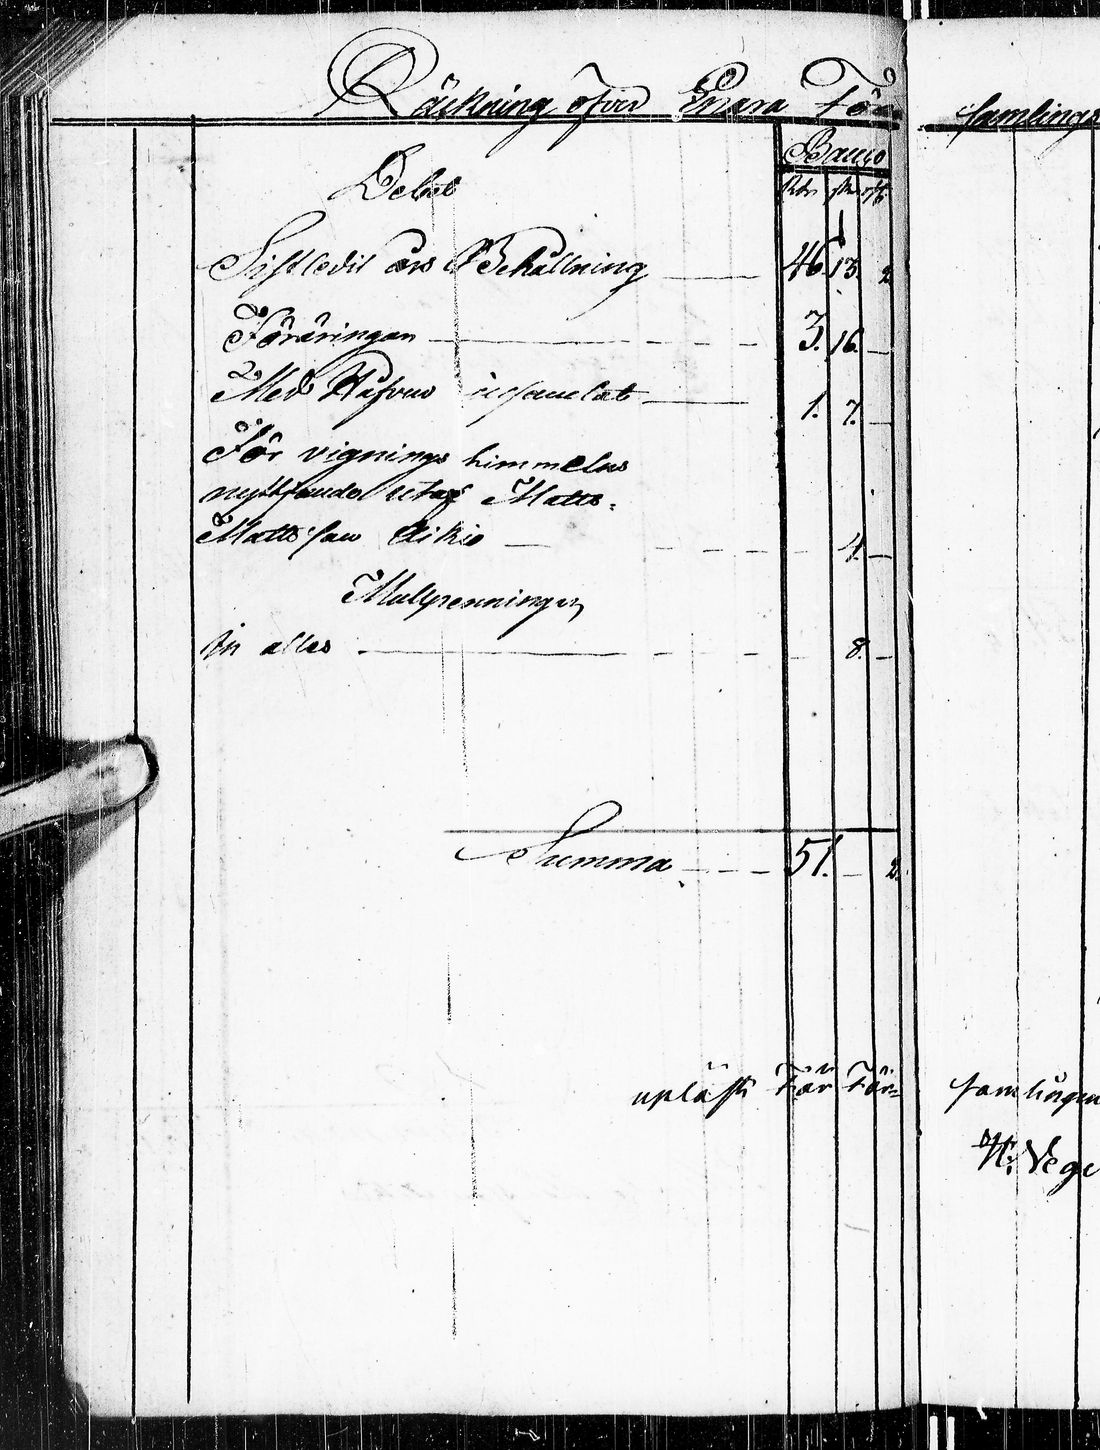 Räkning öfver Enara För samlings
Banco
Debet Rdr sk. rst.
Sistledit års Behållning 46. 13. 2
Föräringar 3. 16. —
Med Håfven insamlat 1. 7. —
För vignings himmelns
nyttjande utaf Matts
Mattsson Aikio — 4. —
Mullpenningar
In alles — 8. —
Summa 51. — 2.
upläst För För= samlingen